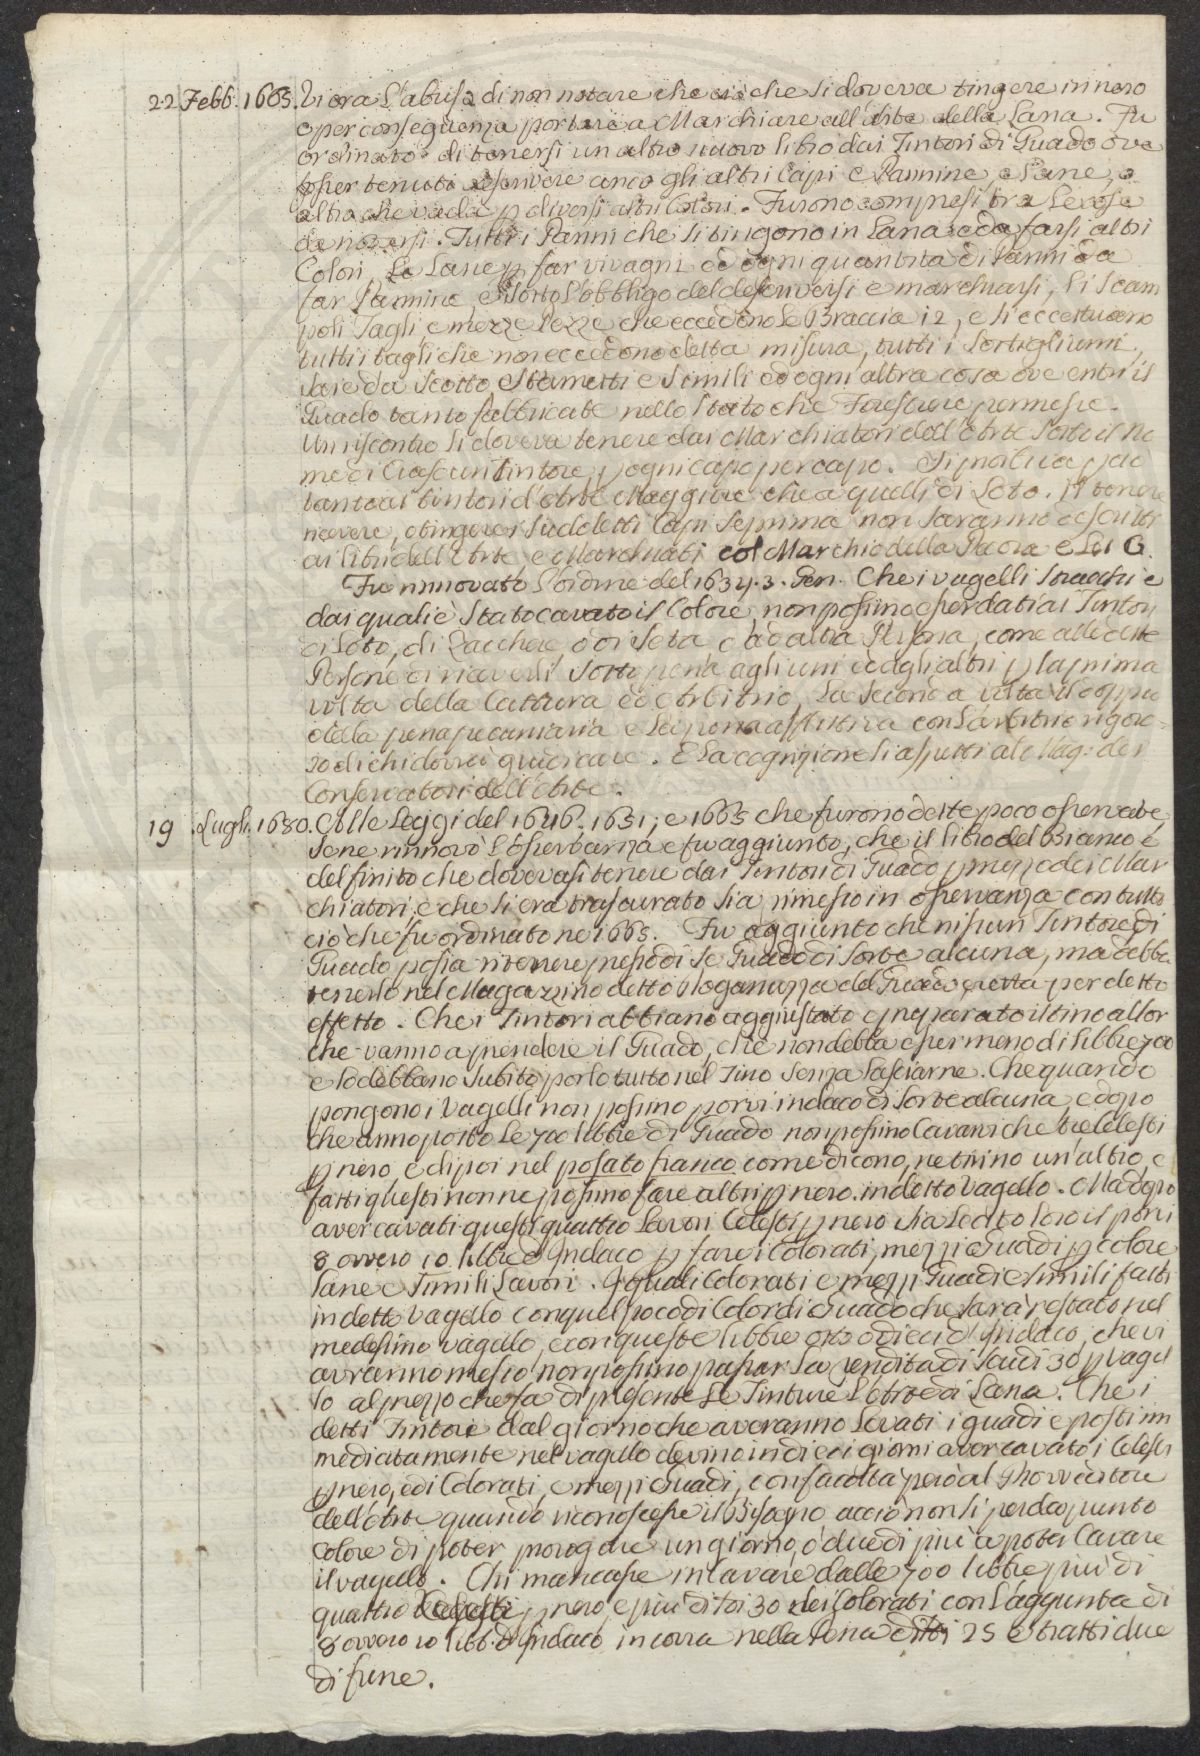 22 Febb. 1665. Vi era l'abuso di non notare che ciò che si doveva tingere in nero
e per conseguenza portare a Marchiare all'Arte della Lana. Fu
ordinato di tenersi un altro nuovo libro dai Tintori di Guado ove
esser tenuti descrivere anco gli altri Capi e Pannine, e Lane, o
altro che vada p diversi altri Colori. Furono compresi tra le cose
da notarsi. Tutti i Panni che si tingono in Lana e da farsi altri
Colori, Le Lane p far vivagni ed ogni quantità di Panni da
far Pannine, e sotto l'obbligo del descriversi e marchiarsi, li scam
poli Tagli, e mezze Pezze che eccedono le Braccia 12, e si eccettuano
tutti i tagli che non eccedono detta misura, tutti i
Saie da Scotto, Stametti e simili ed ogni altra cosa ove entri il
Guado tanto fabbricate nello Stato che Forestiere permesse.
Un riscontro si doveva tenere dai Marchiatori dell'Arte sotto il No
me di Ciascun tintore, p ogni capo per capo. Si proibiva p ciò
tanto ai tintori d'Arte Maggiore che a quelli di Loto. Il tenere
ricevere, o tingere i sudetti Capi se prima non saranno descritti
ai libri dell'Arte, e Marchiati col Marchio della Pecora e Lel G.
Fu rinnovato l'ordine del 1634. 3. Gen. Che i vagelli stracchi e
dai quali è stato cavato il Colore, non possino esser dati ai Tintori
di Loto, di Zacchere, o di Seta, o ad altra Persona, come alle dette
Persone di riceverli sotto pena agli uni ed agli altri p la prima
volta della Cattura ed Arbitrio, La seconda volta il doppio
della pena pecuniaria e di pena afflittiva con l'arbitrio rigoro=
so di chi dovrà giudicare. E la cognizione si aspetti al Mag: dei
Conservatori dell'Arte.
19 Lugli. 1680. Colle Leggi del 1646. 1651, e 1665 che furono dette poco osservate,
se ne rinnovò l'osservanza e fu aggiunto, che il libro del Bianco e
del finito che dovevasi tenere dai Tintori di Guado p mezzo dei Mar
chiatori e che si era trascurato sia rimesso in osservanza con tutto
ciò che fu ordinato ne 1665. Fu aggiunto che nissun Tintore di
Guado possa ritenere presso di se Guado di sorte alcuna, ma debba
tenerlo nel Magazzino detto Stoganuzza del Guado eretta per detto
effetto. Che i Tintori abbiano aggiustato e preparato il tino allor
che vanno a prendere il Guado, che non debba esser meno di libbre 700
e lo debbano subito porlo tutto nel Tino senza lasciarne. Che quando
pongono i Vagelli non possino porvi indaco di sorte alcuna, e dopo
che anno posto le 700 libbre di Guado non possino Cavarvi che tre Celesti
p nero, e di poi nel posato franco come dicono, ne tirino un'altro, e
fatti questi non ne possino fare altri p nero in detto Vagello. Ma dopo
aver cavati questi quattro Lavori Celesti p nero sia Lecito loro il porvi
8 ovvero 10 libbre d'Indaco p fare i Colorati, mezzi Guadi p colore
Lane e Simili Lavori. I quali Colorati e mezzi Guadi e simili fatti
in detto Vagello con quel poco di Color di Guado che sarà restato nel
medesimo Vagello, e con queste libbre otto o dieci d'Indaco, che vi
avranno messo non possino passar la rendita di Scudi 30 p vagel
lo al prezzo che fa di presente le Tinture l'Arte di Lana. Che i
detti Tintori dal giorno che averanno Levati i guadi e posti im
mediatamente nel vagello devino in dieci giorni aver cavato i Celesti
p nero, ed i Colorati, e mezzi Guadi, con facoltà però al Provveditore
dell'Arte quando riconoscesse il bisogno acciò non si perda punto
colore di poter prorogare un giorno, o due di più a poter Cavare
il vagello. Chi mancasse in cavare dalle 700 libbre più di
quattro Celesti p nero, e più di 30 dei Colorati con l'aggiunta di
8 ovvero 10 libb. d'Indaco incorra nella Pena di 25 e tratti due
di fune.